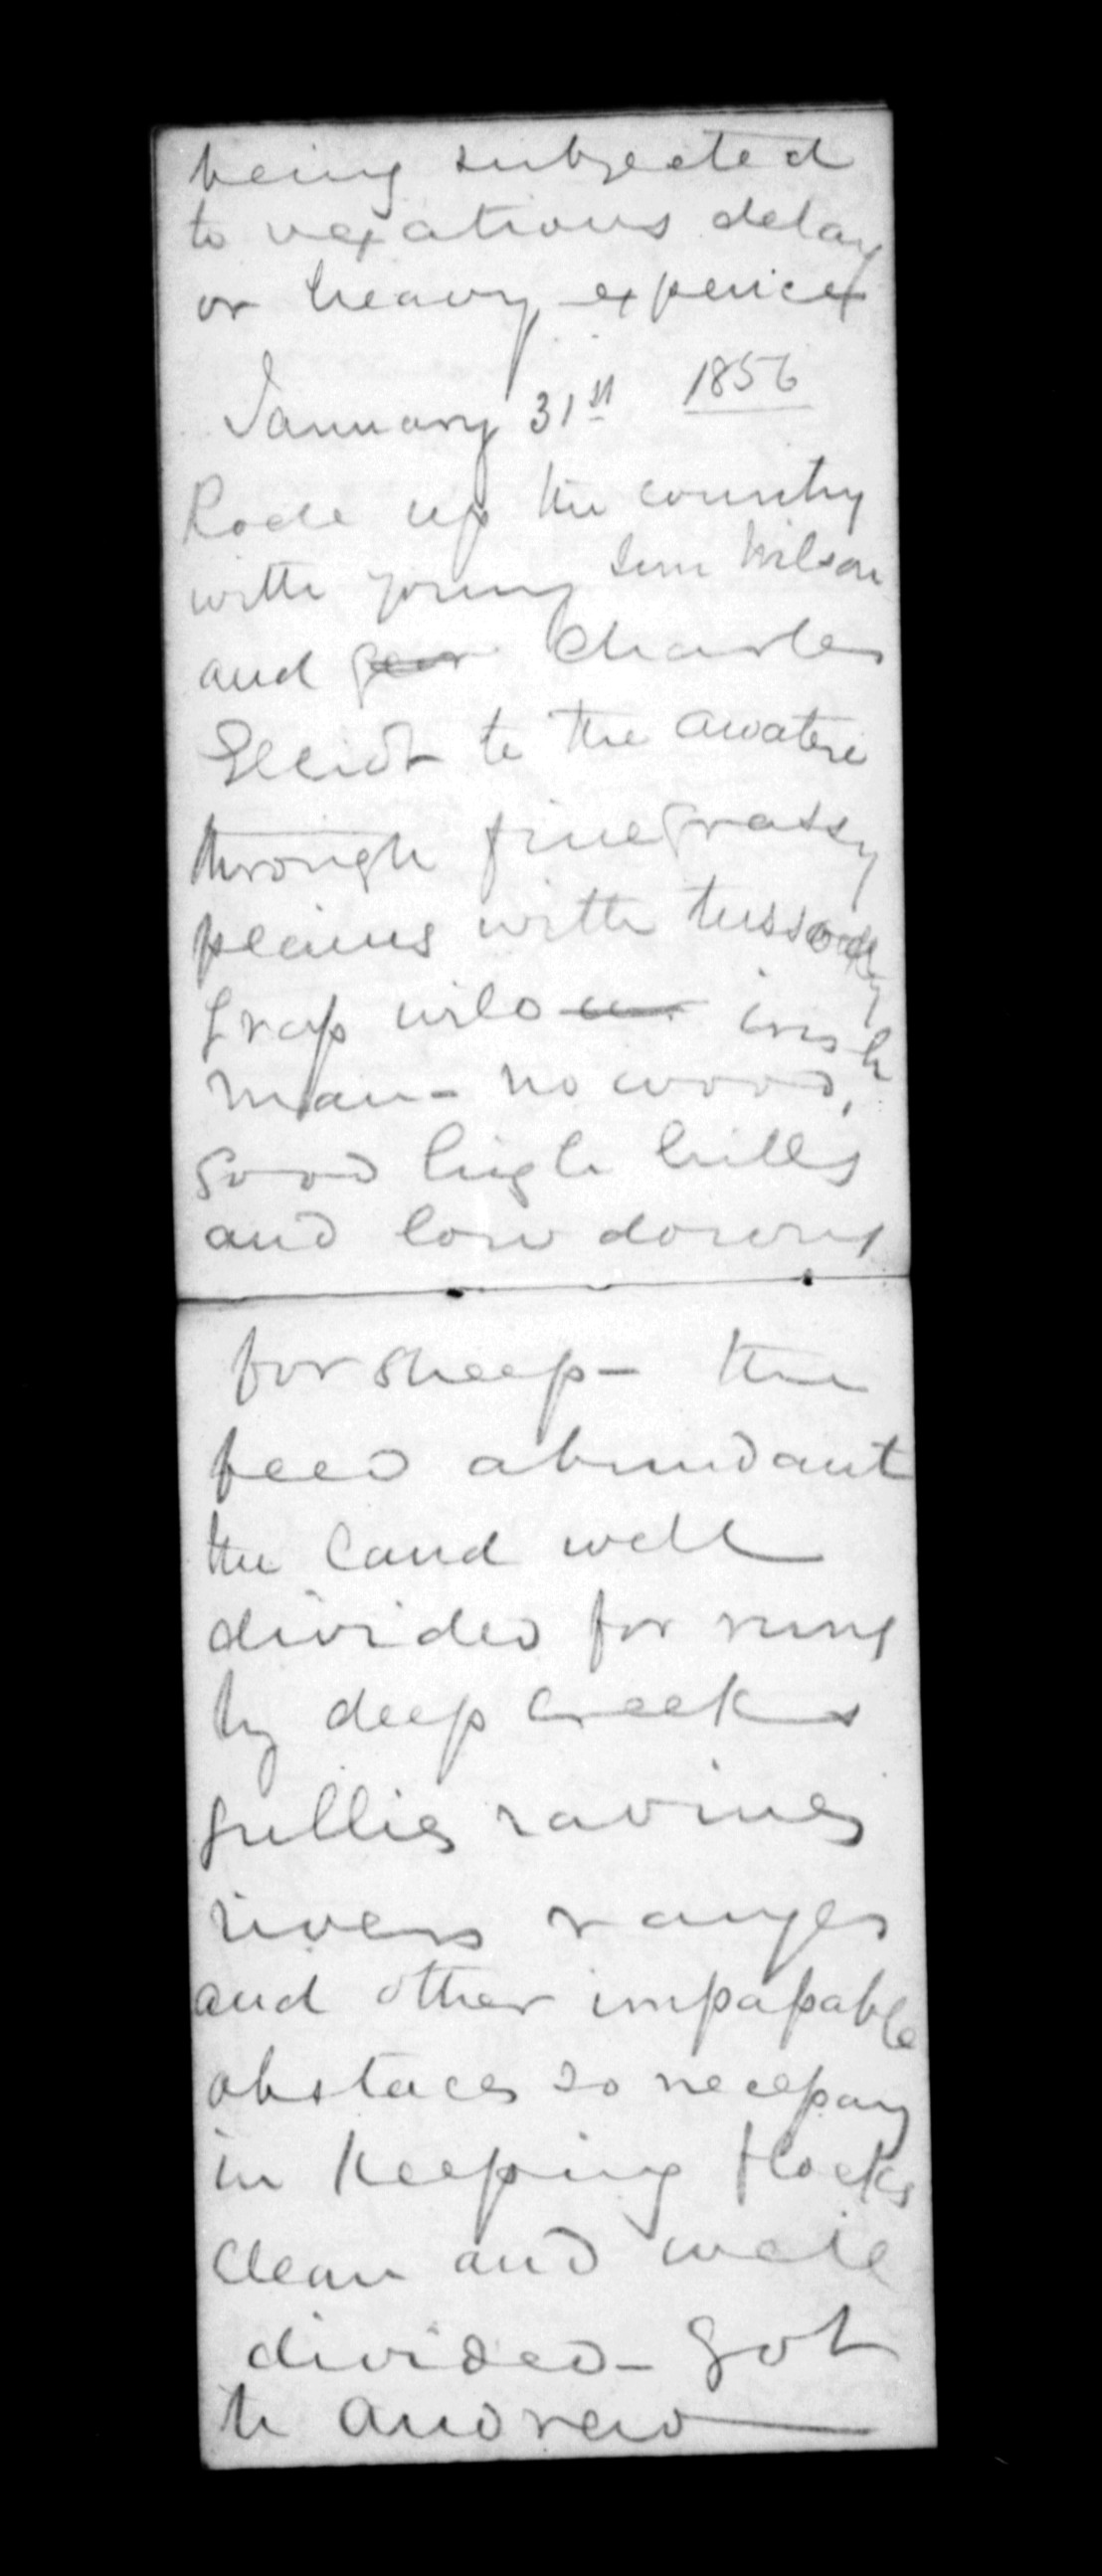 being subjected
to vexatious delay
or heavy expence
January 31st 1856
Rode up the country
with young Wilson
and Charles
Elliot to the Awatere
through fine grassy
plains with tussocky
grass wild irish
man - no wood,
good high hills
and low downs
for sheep - the
feed abundant
the land well
divided for runs
by deep creeks
gullies ravines
rivers ranges
and other impassable
obstaces so necessary
in keeping flocks
clean and well
divided - got
to Andrew